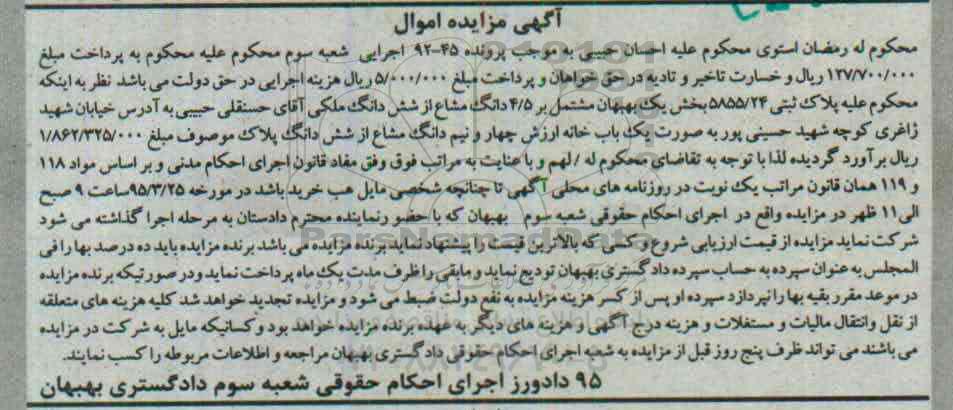 آگهی مزایده اموال
محکوم له رمضان استوی محکوم علیه احسان حبیبی به موجب پرونده ۴۵-۹۲ اجرایی شعبه سوم محکوم علیه محکوم به پرداخت مبلغ
۱۲۷/۷۰۰/۰۰۰ ریال و خسارت تاخیر و تادیه در حق خواهان و پرداخت مبلغ ۵/۰۰۰/۰۰۰ ریال هزینه اجرایی در حق دولت می باشد نظر به اینکه
محکوم علیه پلاک ثبتی ۵۸۵۵/۲۴ بخش یک بهبهان مشتمل بر ۴/۵ دانگ مشاع از شش دانگ ملکی آقای حسنقلی حبیبی به آدرس خیابان شهید
زاغری کوچه شهید حسینی پور به صورت یک باب خانه ارزش چهار و نیم دانگ مشاع از شش دانگ پلاک موصوف مبلغ ۱/۸۶۲/۳۲۵/۰۰۰
ریال برآورد گردیده لذا با توجه به تقاضای محکوم له / لهم و با عنایت به مراتب فوق وفق مفاد قانون اجرای احکام مدنی و بر اساس مواد ۱۱۸
و ۱۱۹ همان قانون مراتب یک نوبت در روزنامه های محلی آگهی تا چنانچه شخصی مایل هب خرید باشد در مورخه ۹۵/۳/۲۵ساعت ۹ صبح
الی۱۱ ظهر در مزایده واقع در اجرای احکام حقوقی شعبه سوم بهبهان که با حضور نماینده محترم دادستان به مرحله اجرا گذاشته می شود
شرکت نماید مزایده از قیمت ارزیابی شروع و کسی که بالاترین قیمت را پیشنهاد نماید برنده مزایده می باشد برنده مزایده باید ده درصد بها را فی
المجلس به عنوان سپرده به حساب سپرده دادگستری بهبهان تودیع نماید و مابقی را ظرف مدت یک ماه پرداخت نماید ودر صورتیکه برنده مزایده
در موعد مقرر بقیه بها را نپردازد سپرده او پس از کسر هزینه مزایده به نفع دولت ضبط می شود و مزایده تجدید خواهد شد کلیه هزینه های متعلقه
از نقل وانتقال مالیات و مستغلات و هزینه درج آگهی و هزینه های دیگر به عهده برنده مزایده خواهد بود و کسانیکه مایل به شرکت در مزایده
می باشند می تواند ظرف پنج روز قبل از مزایده به شعبه اجرای احکام حقوقی دادگستری بهبهان مراجعه و اطلاعات مربوطه را کسب نمایند.
۹۵ دادورز اجرای احکام حقوقی شعبه سوم دادگستری بهبهان
ParsNamadData